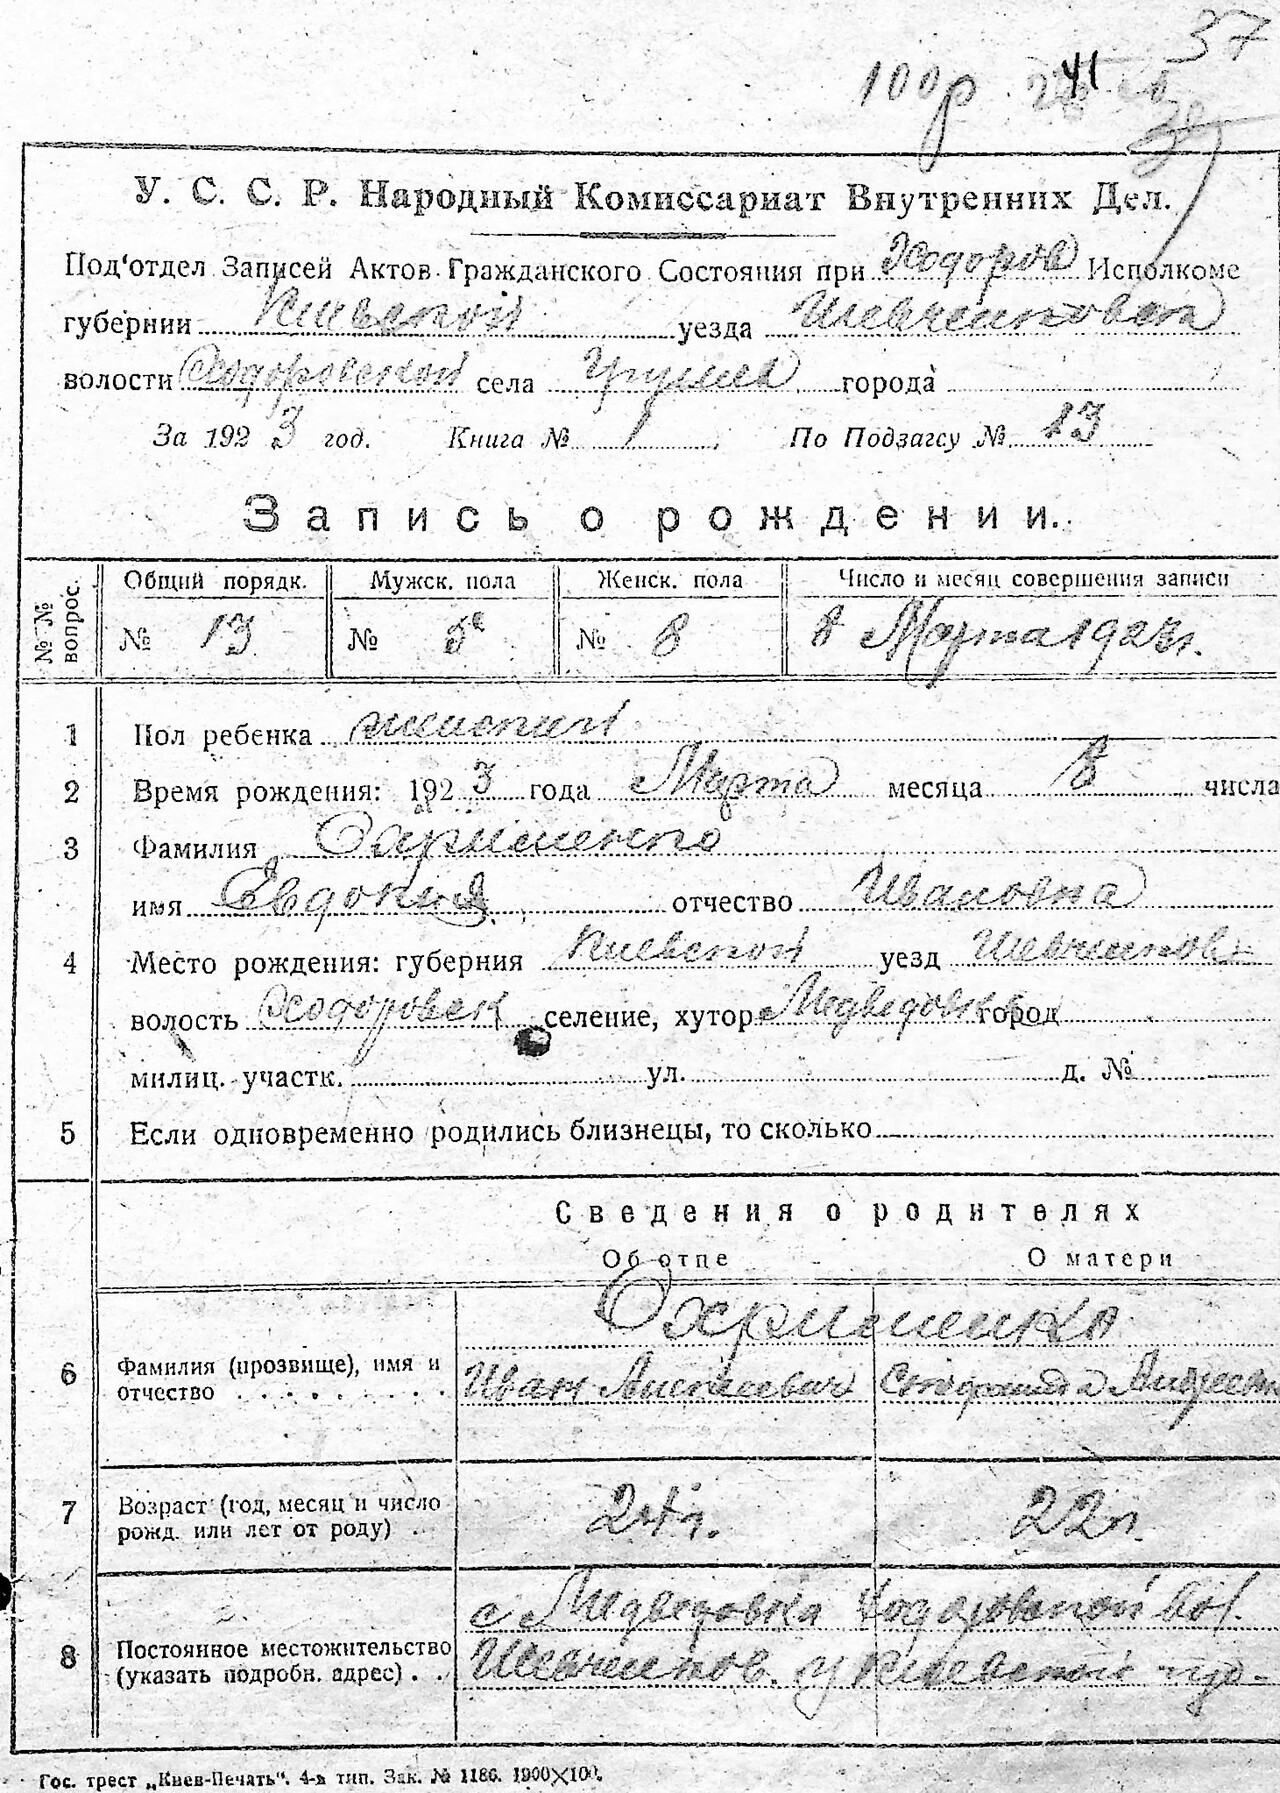 37
100р 41
У. С. С. Р. Народный Комиссариат Внутренних Дел.
Под'отдел Записей Актов Гражданского Состояния при Ходоров Исполкоме
губернии Киевской уезда Шевченковск
волости Ходоровской села города
За 1923 год. Книга № 1 По Подзагсу № 13
Запись о рождении.
№ № вопрос. Общий порядк. Мужск. пола Женск. пола Число и месяц совершения записи
№ 13 № 5 № 8 8 Марта 1923 г.
1 Пол ребенка женский
2 Время рождения: 1923 года Марта месяца 8 числа
3 Фамилия Охрименко
имя Евдокия отчество Ивановна
4 Место рождения: губерния Киевской уезд Шевченков
волость Ходоровск селение, хутор Медведовка город
милиц. участк. ул. д. №
5 Если одновременно родились близнецы, то сколько
Сведения о родителях
Об отце О матери
Охрименко
6 Фамилия (прозвище), имя и
отчество Иван Алексеевич Стефанида Андреевн
7 Возраст (год, месяц и число
рожд. или лет от роду) 24 г. 22 г.
с Медведовка Ходоровской вол.
8 Постоянное местожительство Шевченков. у Киевской губ-
(указать подробн. адрес)
Гос. трест „Киев-Печать". 4-я тип. Зак. № 1186. 1900×100.